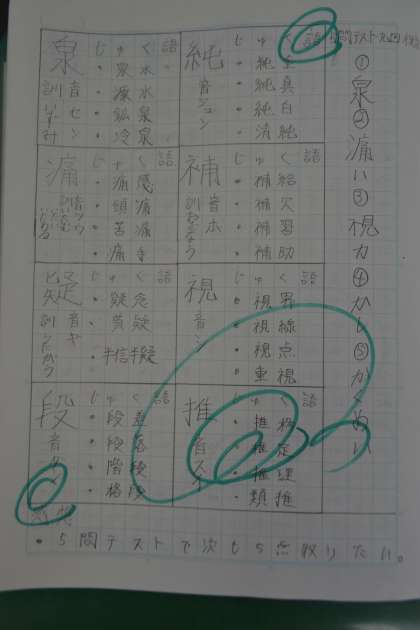 語 5問テスト
①泉②痛い③視力④かし⑤かくぬい
純 音ジュン
じゅく語
・純真
・純白
・清純
補 音ホ 訓おぎなう
じゅく語
・補給
・補欠
・補習
・補助
視 音シ
じゅく語
・視界
・視線
・視点
・重視
推 音スイ
じゅく語
・推移
・推定
・推理
・類推
泉 音セン 訓いずみ
じゅく語
・泉水
・源泉
・鉱泉
・冷泉
痛 音ツウ
じゅく語
・痛感
・頭痛
・苦痛
・痛手
疑 音ギ 訓うたがう
じゅく語
・疑念
・質疑
・半信半疑
段 音ダン
じゅく語
・段差
・段落
・階段
・格段
・5問テストで次も5点取りたい。